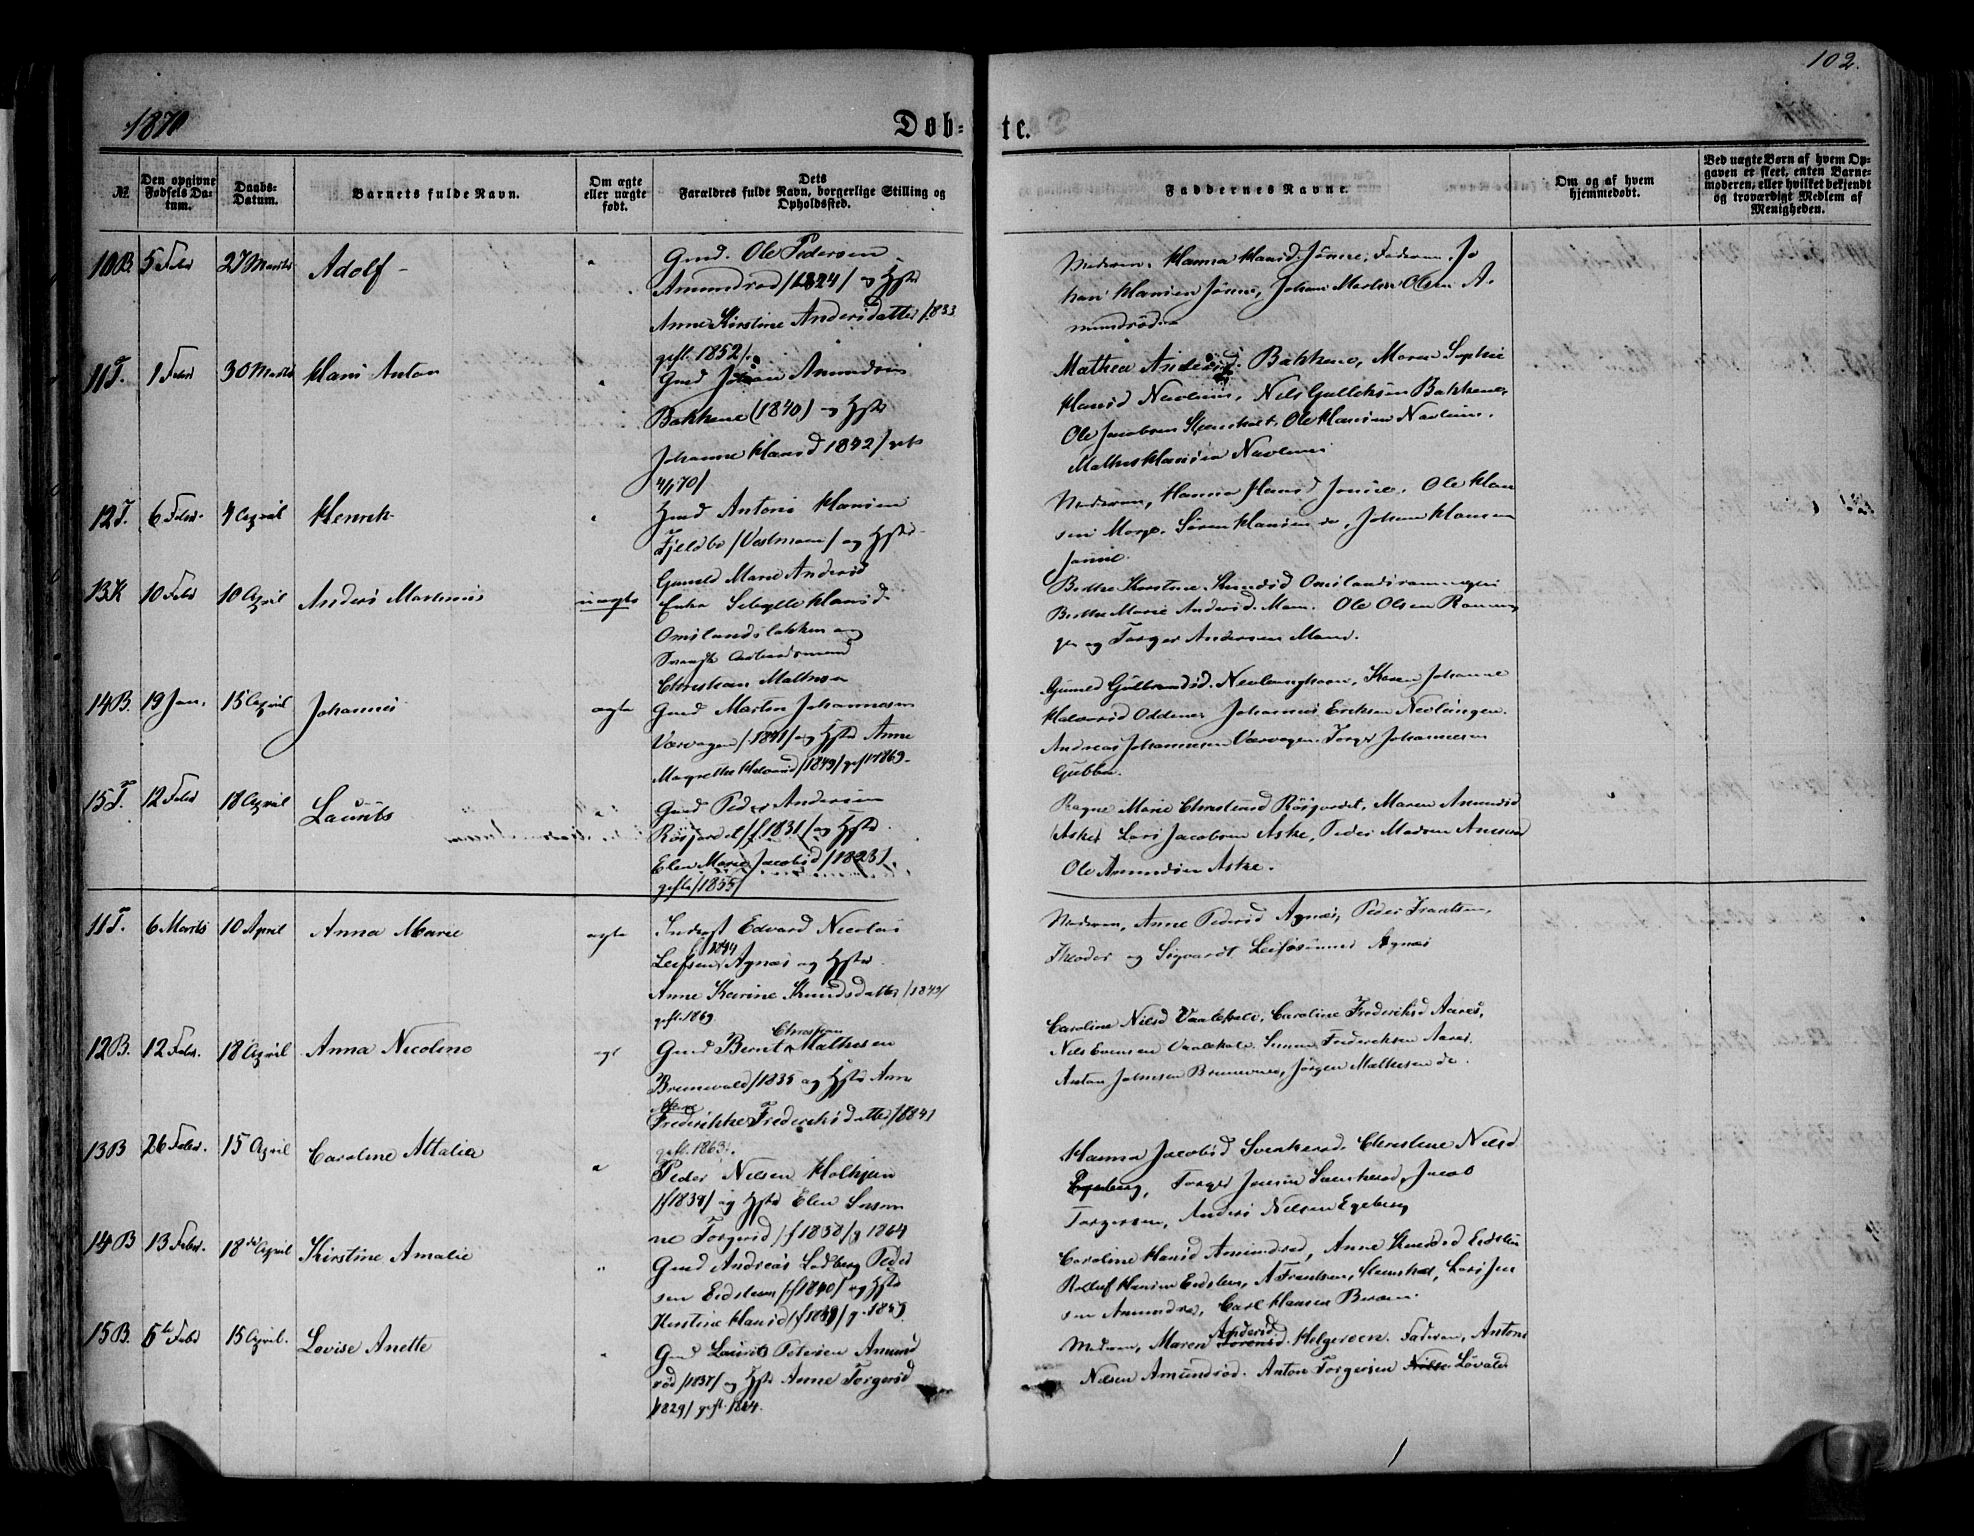 102.
1870
Døb- te.
№
Den opgivne Fødsels Datum.
Daabs-Datum.
Barnets fulde Navn.
Om ægte eller uægte født.
Dets Forældres fulde Navn, borgerlige Stilling og Opholdssted.
Faddernes Navne.
Om og af hvem hjemmedøbt.
Ved uægte Børn af hvem Opgaven er skeet, enten Barnemoderen, eller hvilket bekjendt og troværdigt Medlem af Menigheden.
10B. 5 Febr 27 Marts Adolf - " Gmd. Ole Pedersen
Amundrød /1824/ og Hstr
Anne Kirstine Andersdatter /1833
gift 1852/.
Moderen, Hanna Hansd. Jønne, Faderen, Jo
han Hansen Jønne, Johan Martin Olsen A-
mundrød
11T. 1 Febr 30 Marts Hans Anton " Gmd Johan Amundsen
Bakkene (1840) og Hstr
Johanne Hansd 1842/ gift
4/1 70/
Mathea Andersd. Bakkene, Maren Sophie
Hansd Navlum, Nils Gulleksen Bakkene,
Ole Jacobsen Steensholt, Ole Hansen
Mathis Hansen
12T. 6 Febr. 4 April Henrik " Gmd Antoni Hansen
Fjeldbo /Vestmoen/ og Hstr
Gunild Marie Andersd
Moderen, Hanna Hansd Jønne, Ole Han
sen Morge, Søren Hansen do, Johan Hansen
Jønne.
13K 10 Febr 10 April Anders Martinus uægte Enke Sibylle Hansd.
Omslandsløkken og
Arbeidsmand
Christian Mathisen
Berthe Kirstine Knudsd Omslands
Berthe Marie Andersd. Moen. Ole Olsen Ronnin
gen og Torger Andersen Moen.
14B. 19 Jan. 15 April Johannes ægte Gmd Martin Johannesen
Værvagen /1841/ og Hstr Anne
Magrethe Halvorsd /1849/ gift 1869.
Gunild Gulbrandsd. Nevlunghavn, Karen Johanne
Halvorsd Oddene, Johannes Eriksen Nevlungen.
Andreas Johannesen Værvagen. Torger Johannesen
Gubben.
15T. 12 Febr 18 April Laurits " Gmd Peder Andersen
Røsgardet /f 1831/ og Hstr
Elen Marie Jacobsd /1823/.
gifte /1855/
Ragne Marie Christensd Røsgardet, Maren Amundsd
Aske, Lars Jacobsen Aske, Peder Madsen
Ole Amundsen Aske.
11T. 6 Marts 10 April Anna Marie ægte Inderst Edvard Nicolai
1844
Leifsen Agnæs og Hstr
Anne Karine Knudsdatter /1842/
gift 1869.
Moderen, Anne Pedersd Agnæs, Peder Frantsen,
Theodor og Sigvardt Leifssønner Agnæs
12B. 12 Febr. 18 April Anna Nicoline ægt Gmd Bernt Mathesen
Christian
Brunevald /1835 og Hstr Anne
Marie
Frederikke Frederiksdatter /1841
gift 1863/.
Caroline Nilsd Vaalekele, Caroline Frederiksd Aares,
Nils Evensen Vaalekele Simon Frederiksen Aares.
Anton Johnsen Jørgen Mathesen do.
13B 26 Febr. 15 April Caroline Attalia " Peder Nilsen Holhjem
/f 1839/ og Hstr Elen Susan
ne Torgersd /f 1838/ g 1864
Hanna Jacobsd Svenkerød, Christine Nilsd
Egeberg, Torger Jensen Svenkerød, Jacob
Torgersen, Anders Nilsen Egeberg
14B 13 Febr. 18de April Kirstine Amalie " Gmd Andreas Lødberg Peder
sen Eidsteen /f 1840/ og Hstr
Kirstine Hansd
Caroline Hansd Amundrød, Anne Knudsd Eidsten
Rolluf Hansen Eidsten, A Frantsen, Steensholt, Lars Jen
sen Amundrød, Carl Hansen
15B. 5te Febr 15 April. Lovise Anette " Gmd Laurits Petersen Amund
rød /1837/ og Hstr Anne Torgersd
1829/ gift 1864.
Andersd
Moderen, Maren Torensd. Helgeroen. Faderen, Anton
Nilsen Amundrød. Anton Torgersen Nilsen
1